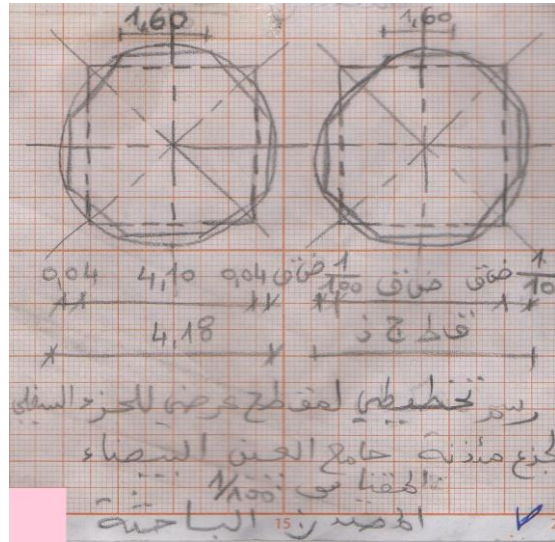 1,60 1,60
0,04 4,10 0,04 ض ق 1/100 ض ق ض ق 1/10
4,18 ق ط ج ذ
رسم تخطيطي لمقطع عرضي للجزء السفلي
لجذع مئذنة جامع العين البيضاء
المقياس 1/100
المصدر: الباحثة 15